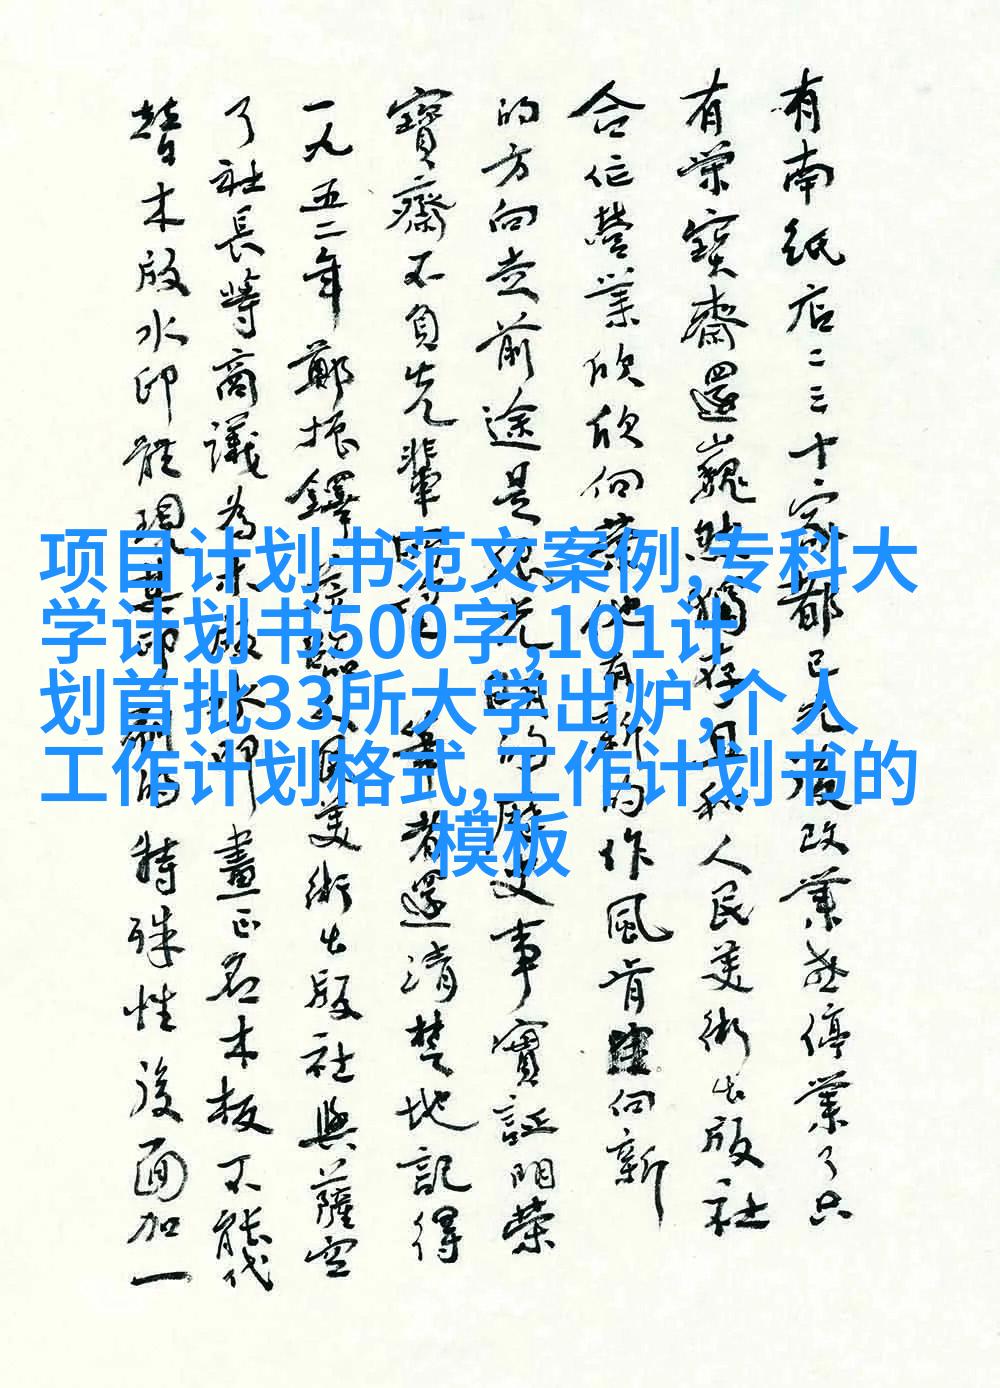 有南紙店二三十家都已先後改業或停業了只
有荣寶齋還巍然獨存且和人民美術出版社
合作營業欣欣向荣他有新的作風肯向新
的方向走前途是很光明的歷史事實証明荣
寶齋不負先輩筆者還清楚地記得
一九五二年鄭振鐸民美術出版社與薩空
了社長等商議為木版水印畫正名木板不能代
替木版水印能現其印刷的特殊性後面加一
项目计划书范文案例,专科大
学计划书500字,101计
划首批33所大学出炉,个人
工作计划格式,工作计划书的
模板